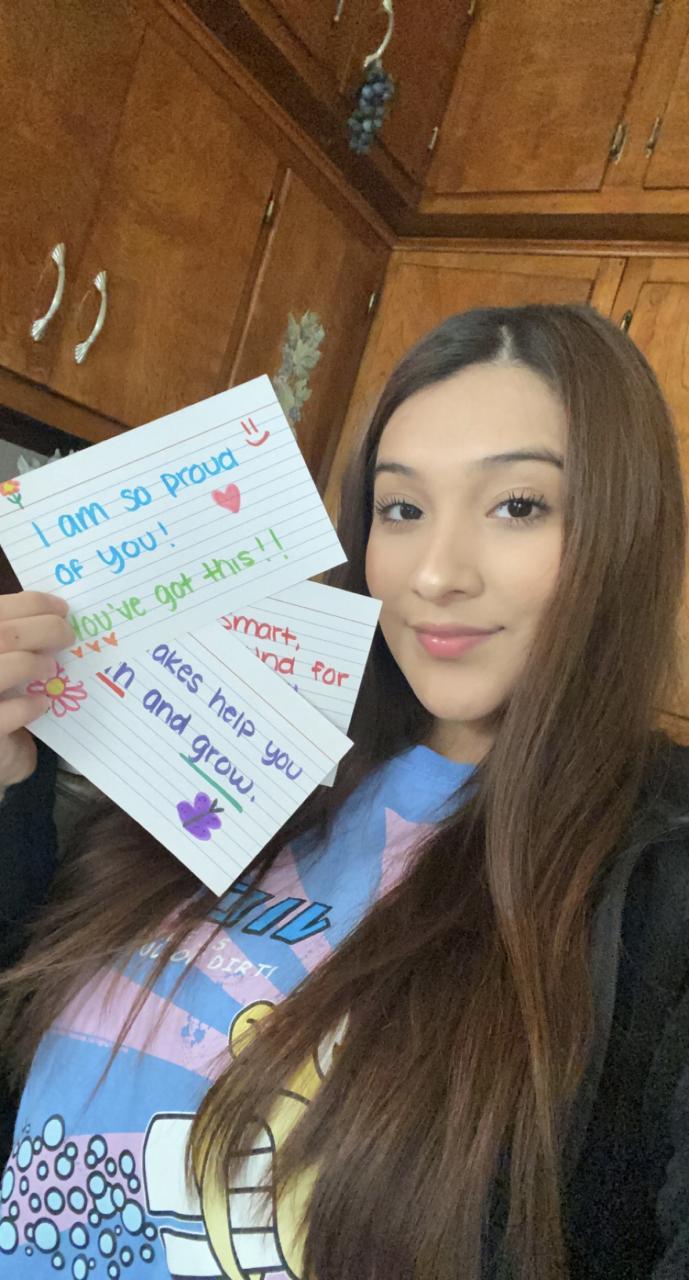 I am so proud
of you!
You've got this!!
smart,
for
akes help you
in and
grow.
DIRT!